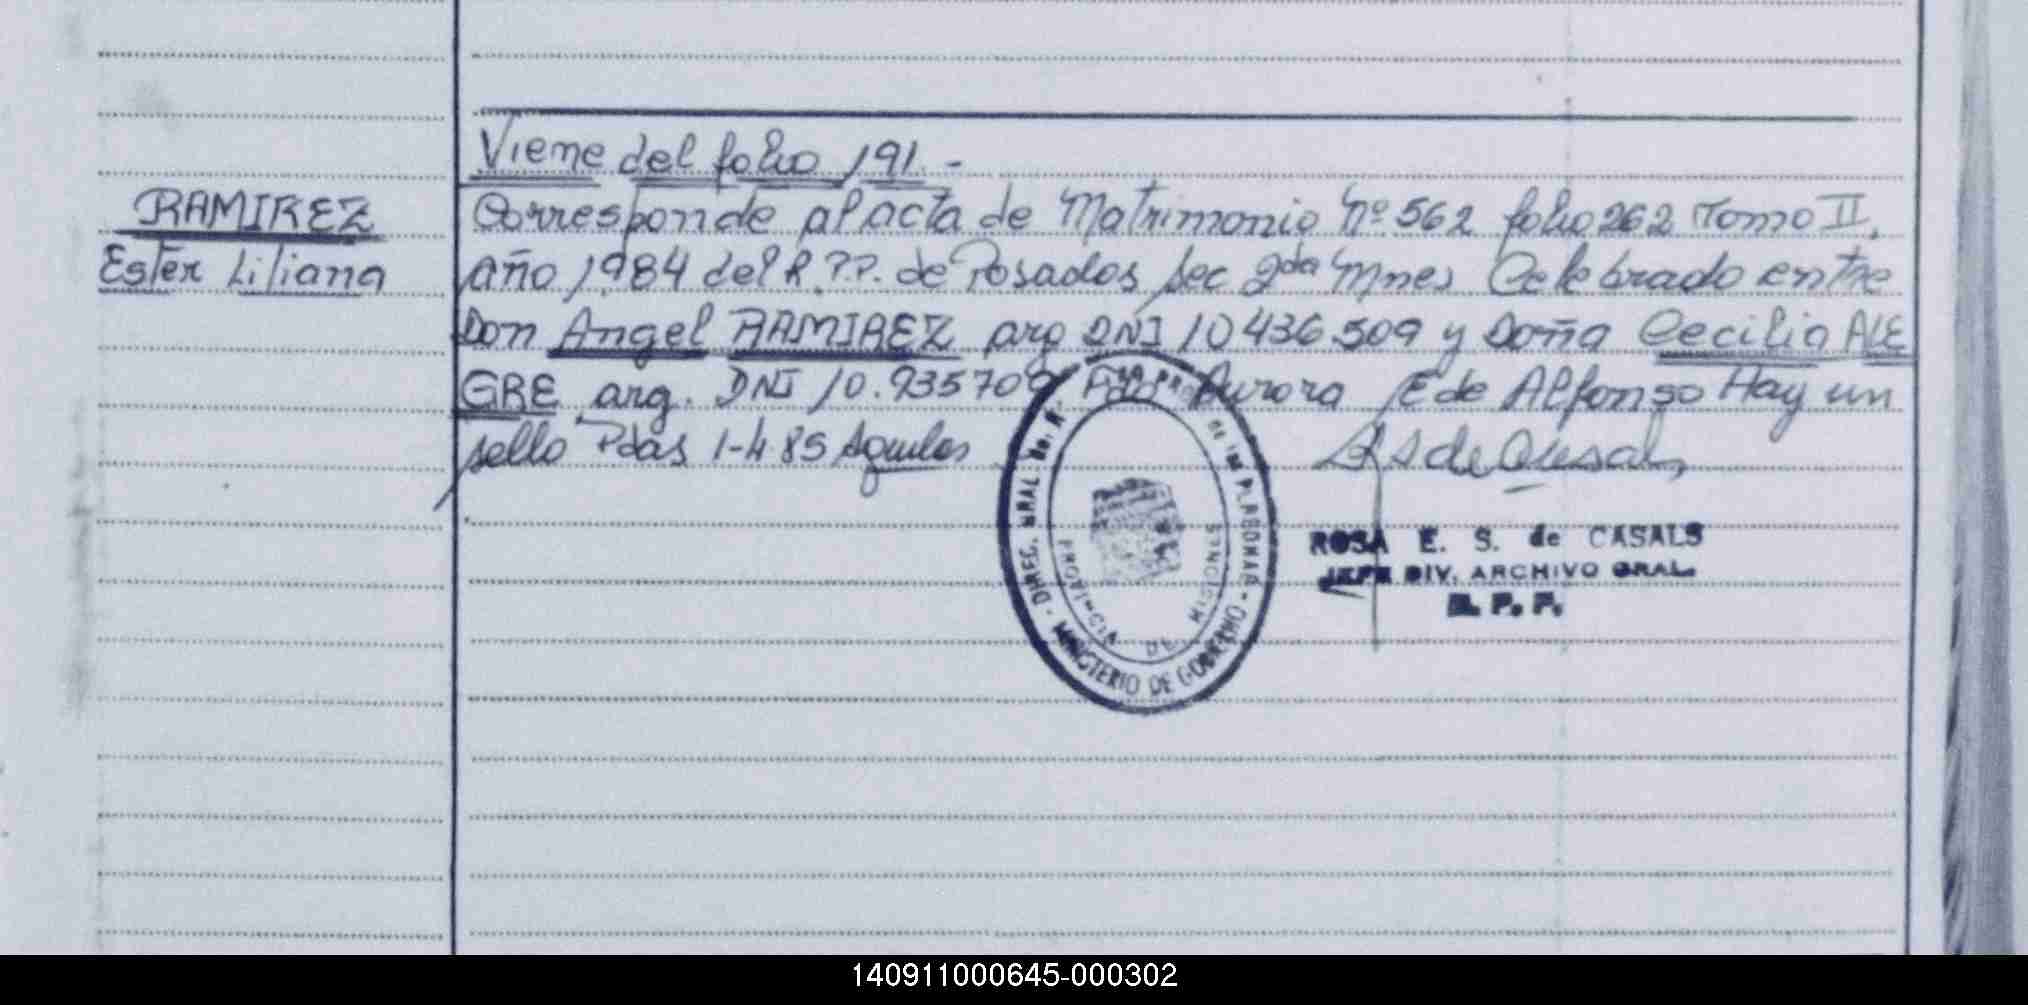 Viene del folio 191.-
RAMIREZ
Ester Liliana
Corresponde al acta de Matrimonio Nº 562 folio 262 Tomo II,
año 1984 del R.P.P. de Posadas Sec 2da Mnes Celebrado entre
Don Angel RAMIREZ arg DNI 10 436.509 y Doña Cecilia ALE
GRE arg. DNI 10.935709 Aurora E de Alfonso Hay un
sello Pdas 1-4 85
ROSA E. S. de CASALS
JEFE DIV. ARCHIVO GRAL.
R. P. P.
DIREC. GRAL de las PERSONAS
MINISTERIO DE GOBIERNO
PROVINCIA DE MISIONES
140911000645-000302